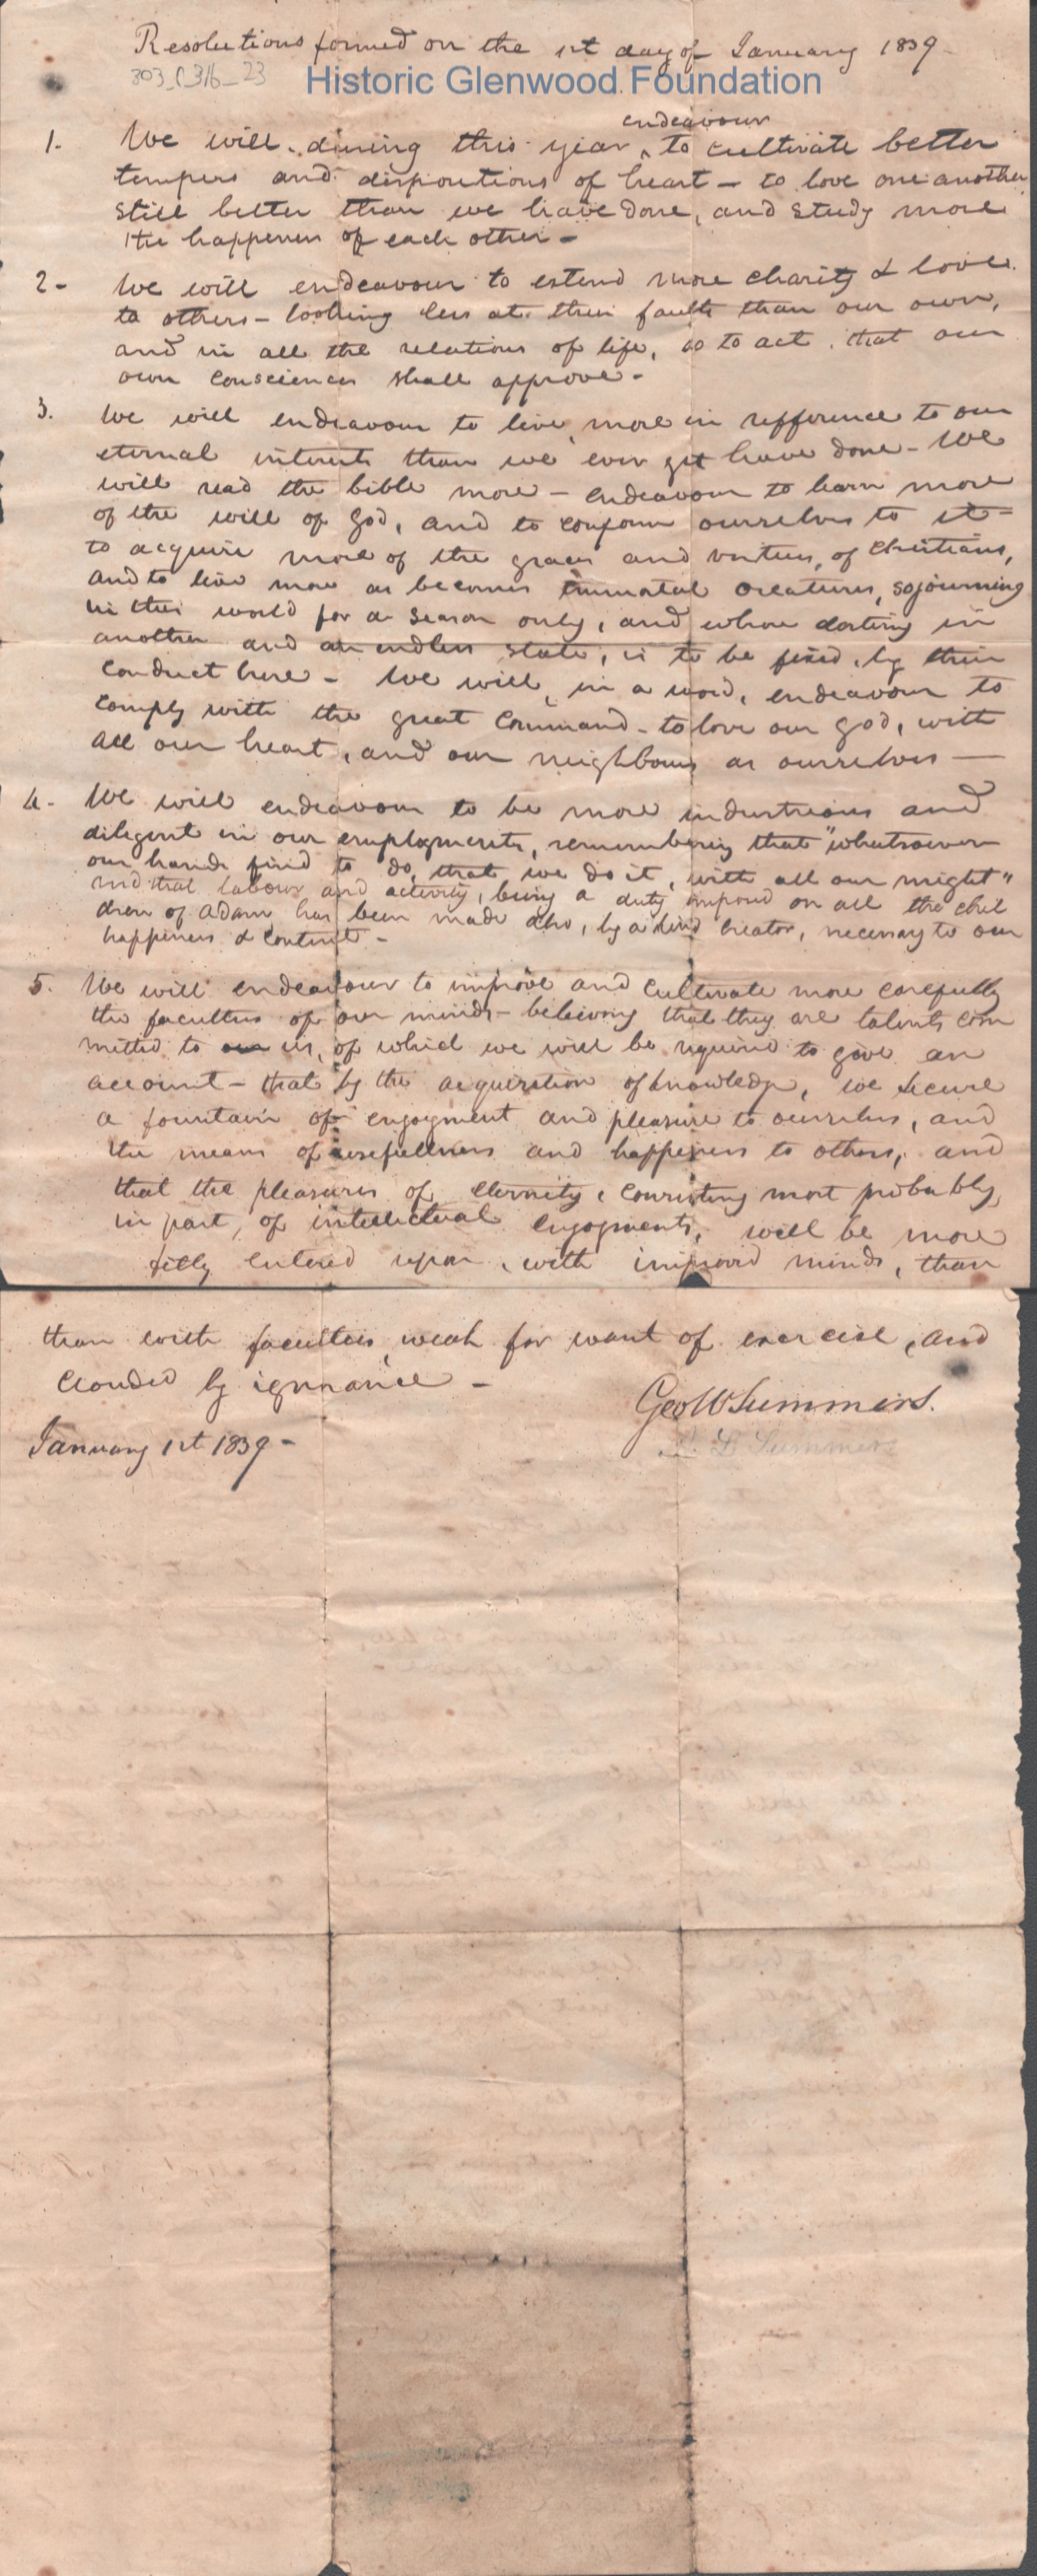 Resolutions formed on the 1st day of January 1839-
303_C316_23
Historic Glenwood Foundation
endeavour
1. We will, during this year, to cultivate better
tempers and dispositions of heart - to love one another
still better than we have done, and study more
the happiness of each other -
2- We will endeavour to extend more charity & love
to others - looking less at their faults than our own,
and in all the relations of life, so to act, that our
own consciences shall approve -
3. We will endeavour to live, more in refference to our
eternal interests than we ever yet have done - We
will read the bible more - endeavour to learn more
of the will of God, and to conform ourselves to it -
to acquire more of the graces and virtues, of Christians,
and to live more as becomes immortal creatures, sojourning
in this world for a season only, and whose destiny in
another and an endless state, is to be fixed, by their
conduct here - We will, in a word, endeavour to
comply with the great command - to love our God, with
all our heart, and our neighbours as ourselves -
4. We will endeavour to be more industrious and
diligent in our employments, remembering that "whatsoever
our hands find to do, that we do it, with all our might"
and that labour and activity, being a duty imposed on all the chil
dren of Adam, has been made also, by a kind Creator, necessary to our
happiness & content -
5. We will endeavour to improve and cultivate more carefully
the faculties of our minds - believing that they are talents com
mitted to us, of which we will be required to give an
account - that by the acquisition of knowledge, we secure
a fountain of enjoyment and pleasure to ourselves, and
the means of usefullness and happiness to others, and
that the pleasures of eternity, consisting most probably,
in part, of intellectual enjoyments, will be more
fitly entered upon, with improved minds, than
than with faculties, weak for want of exercise, and
clouded by ignorance -
Geo W Summers.
January 1st 1839 -
L Summers